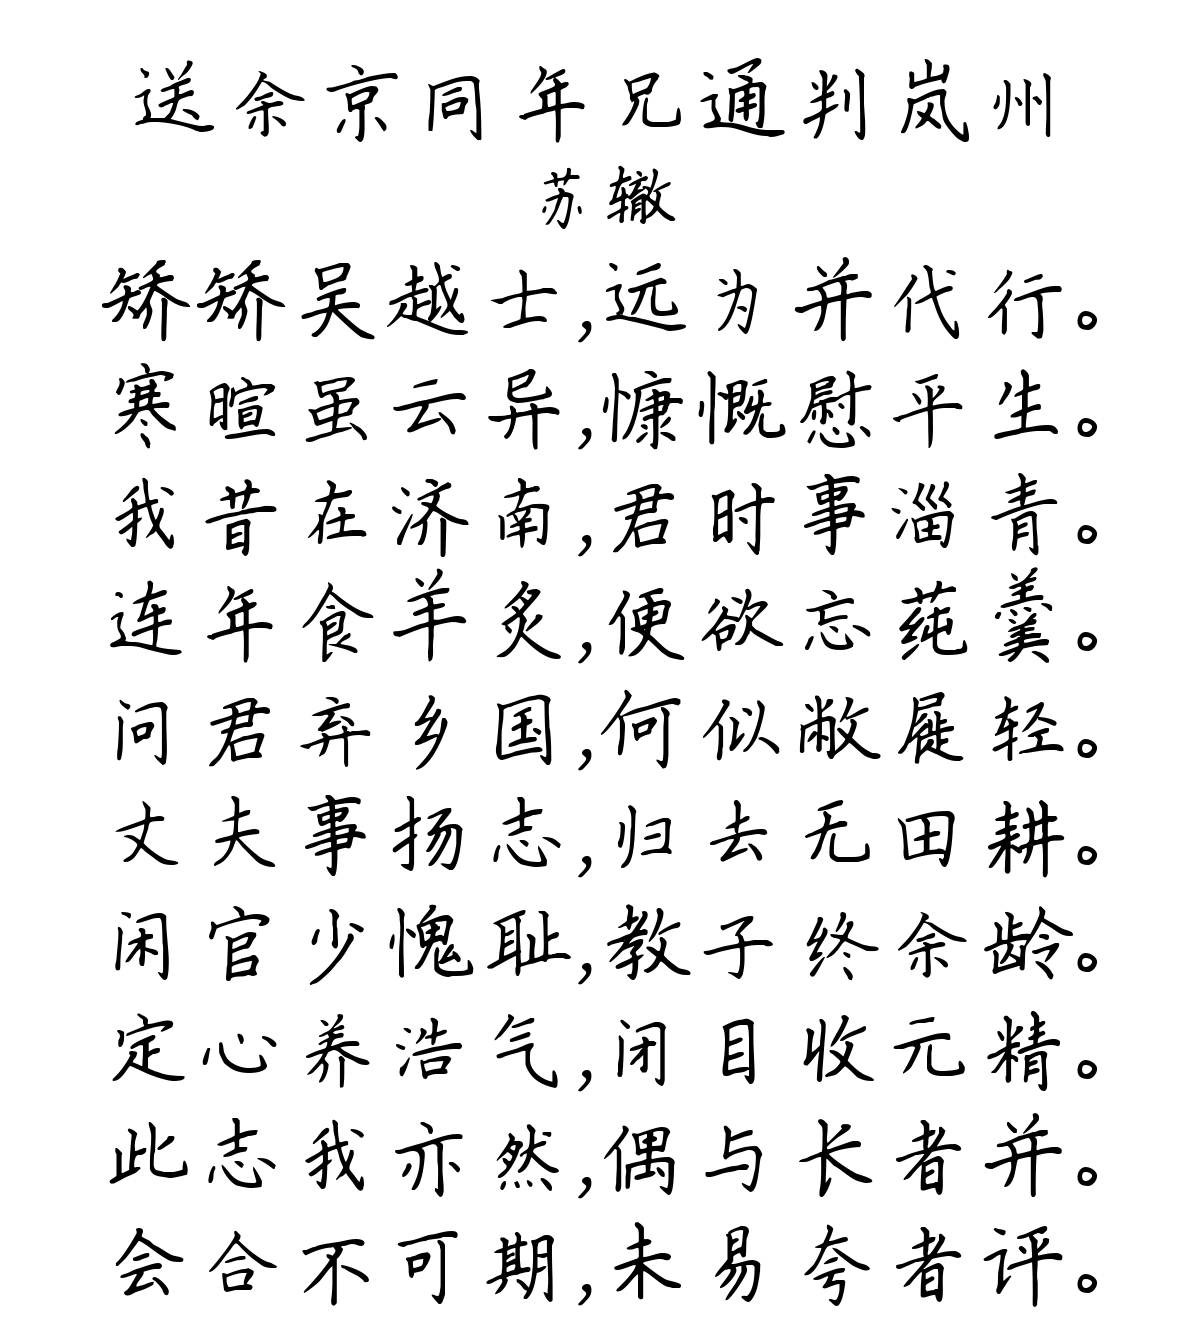 送余京同年兄通判岚州
苏辙
矫矫吴越士,远为并代行。
寒暄虽云异,慷慨慰平生。
我昔在济南,君时事淄青。
连年食羊炙,便欲忘莼羹。
问君弃乡国,何似敝屣轻。
丈夫事扬志,归去无田耕。
闲官少愧耻,教子终余龄。
定心养浩气,闭目收元精。
此志我亦然,偶与长者并。
会合不可期,未易夸者评。